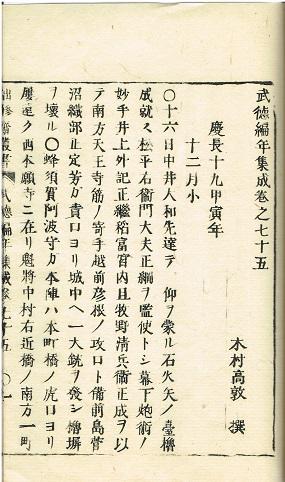 武徳編年集成巻之七十五
木村高敦 撰
慶長十九甲寅年
十二月小
〇十六日中井大和先達テ 仰ヲ蒙ル石火矢ノ臺櫓
成就ス松平右衛門大夫正綱ヲ監使トシ幕下炮術ノ
妙手井上外記正継稲富宮内且牧野清兵衛正成ヲ以
テ南方天王寺筋ノ寄手越前彦根ノ攻口ト備前島菅
沼織部正定芳カ責口ヨリ城中ヘ一大銃ヲ発シ櫓塀
ヲ壊ル〇蜂須賀阿波守カ本陣ハ本町橋ノ虎口ヨリ
西本願寺ニ在リ魁將中村右近橋ノ南方一町
武徳編年集成巻七十五